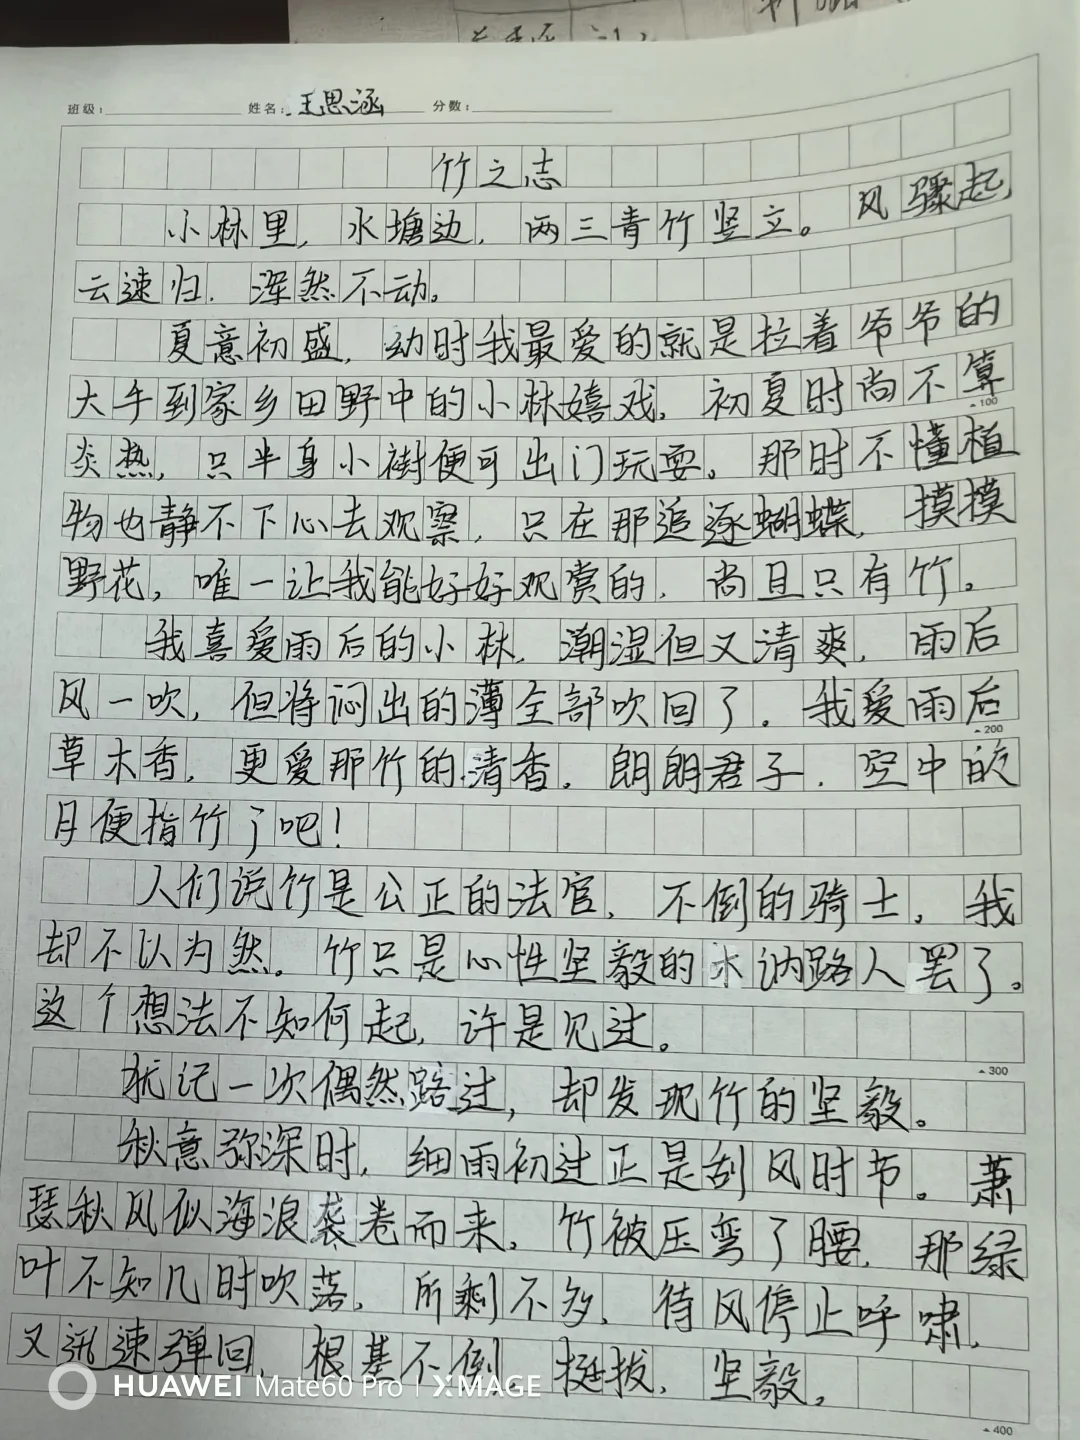 班级: 姓名: 王思涵 分数:
竹之志
小林里，水塘边，两三青竹竖立。风骤起，
云速归，浑然不动。
夏意初盛，幼时我最爱的就是拉着爷爷的
大手到家乡田野中的小林嬉戏，初夏时尚不算
炎热，只半身小衬便可出门玩耍。那时不懂植
物也静不下心去观察，只在那追逐蝴蝶，摸摸
野花，唯一让我能好好观赏的，尚且只有竹。
我喜爱雨后的小林，潮湿但又清爽，雨后
风一吹，但将闷出的薄全部吹回了。我爱雨后
草木香，更爱那竹的清香。朗朗君子，空中的
月便指竹了吧！
人们说竹是公正的法官，不倒的骑士，我
却不以为然。竹只是心性坚毅的木讷路人罢了。
这个想法不知何起，许是见过。
犹记一次偶然路过，却发现竹的坚毅。
秋意弥深时，细雨初过正是刮风时节。萧
瑟秋风似海浪袭卷而来，竹被压弯了腰，那绿
叶不知几时吹落，所剩不多，待风停止呼啸，
又迅速弹回，根基不倒，挺拔，坚毅。
100
200
300
400
HUAWEI Mate60 Pro | XMAGE